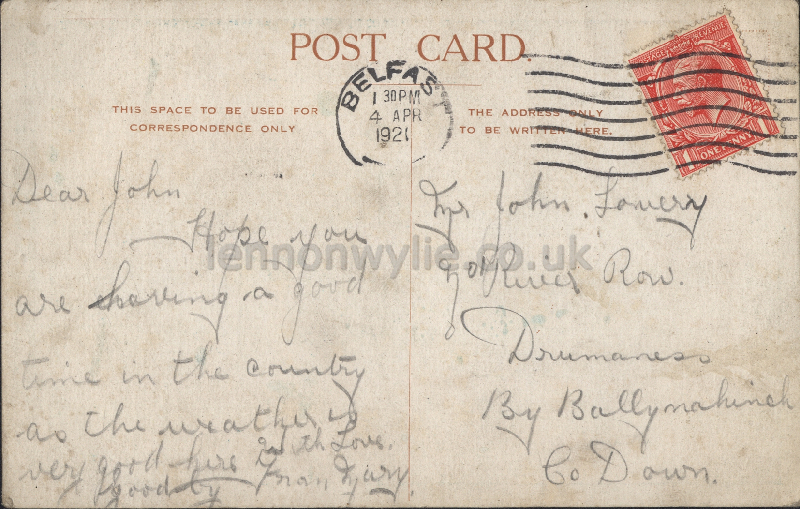 POST CARD.
THIS SPACE TO BE USED FOR
CORRESPONDENCE ONLY
BELFAST
1 30PM
4 APR
1921
THE ADDRESS ONLY
TO BE WRITTEN HERE.
POSTAGE REVENUE
ONE PENNY
Dear John
Hope you
are having a good
time in the country
as the weather is
very good here
good by
with Love
From Mary.
Mr John. Lowery
River Row.
Drumaness
By Ballynahinch
Co Down.
lennonwylie.co.uk